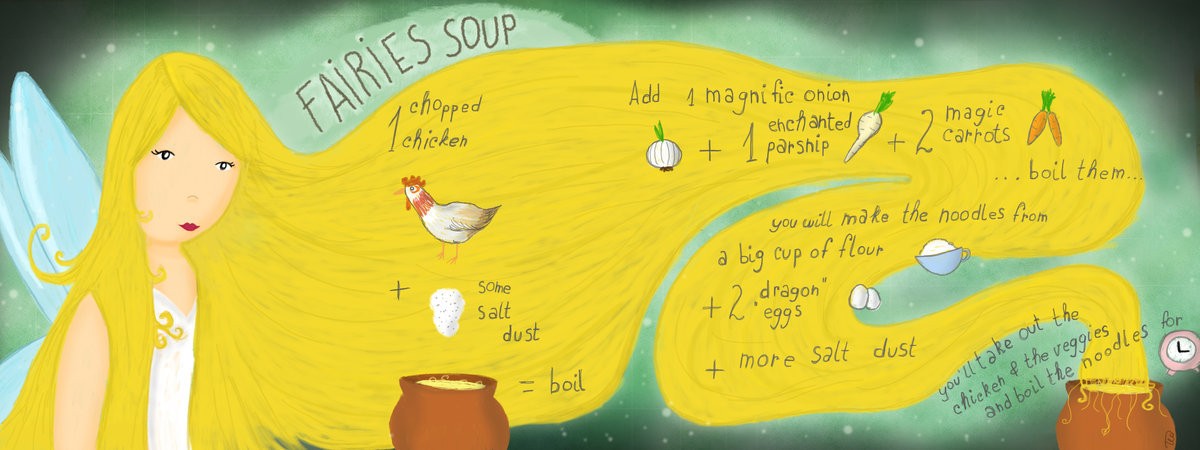 FAIRIES SOUP
1 chopped
chicken
+ some
salt
dust
= boil
Add 1 magnific onion
+ 1 enchanted
parship
+ 2 magic
carrots
...boil them...
you will make the noodles from
a big cup of flour
+ 2 "dragon"
eggs
+ more salt dust
you'll take out the
chicken & the veggies
and boil the noodles for